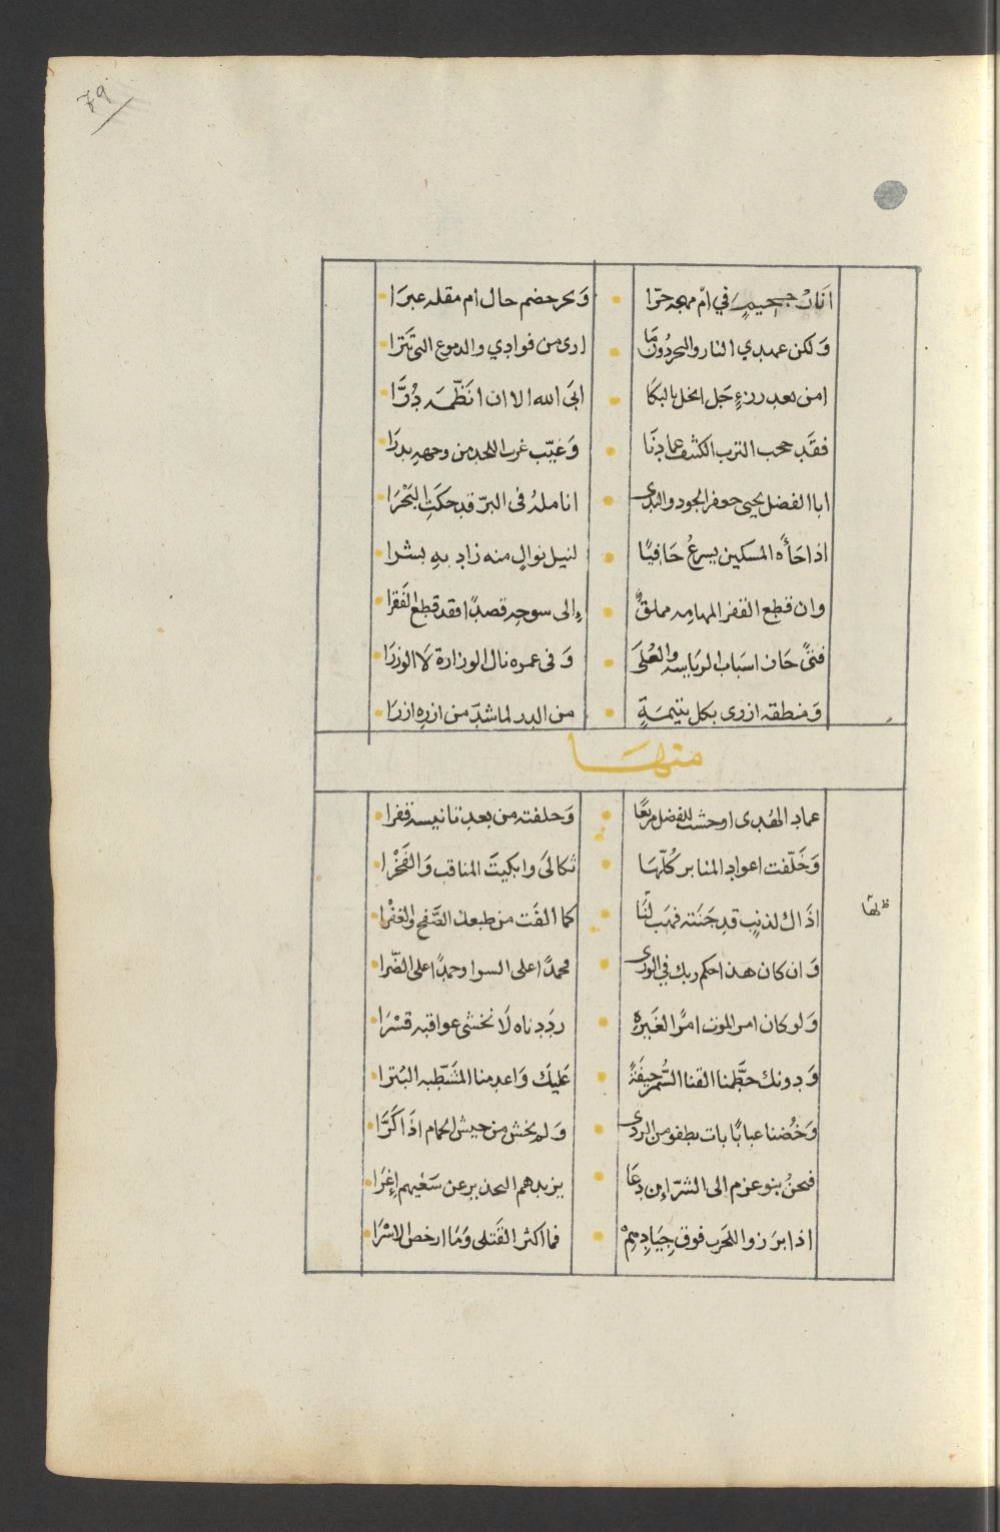 79
انار جحيمٍ في ام مهجه حرّا • وَبحر خضم حال ام مقله عبرَا
وَلكن عهدي النار والبحر دُونَ مَا • ارى من فوادي والدموع التي تَترا
امن بعد رزءٍ جَل ابخل بالبكَا • ابَى الله الا ان انَظّمَه دُرَّا
فقَد حجب الترب الكثيف عمادنَا • وَغيّب غرب اللحد من وجهه بدرَا
ابا الفضل يحيى جعفر الجود والندى • انامله فى البرّ قد حكَتِ البَحْرَا
اذا جَأه المسكين يسرعُ حَافيًا • لنيل نوالٍ منه زاد به بشرا
وان قطع القفر المهامه مملقٌ • إلى سوحه قصدًا فقد قطع الفَقرا
فتىً حَاز اسبَاب الريَاسه والعُلَى • وَفى عمره نال الوزارة لَا الوزرَا
وَمنطقه ازرى بكل يتيمَةٍ • من الدر لما شدّ من ازره ازرَا
منهَا
عماد الهُدى اوحشت للفضل مربعًا • وَخلفته من بعد تانيسه قفرا
وَخَلّفت اعواد المنابر كُلّهَا • ثكالَى وابكيتَ المناقب وَالفَخْرا
اذَاك لذنبٍ قد جَنَته فهَب لنَا • كما الفَت من طبعك الصَّفح والغفْرا
وَان كان هذا حكم ربك في الورى • فحمدًا على السرا وحمدًا على الضّرا
وَلو كان امر الموت امرًا لغَيرهِ • ردَدناه لَا نخشى عواقبه قسْرَا
وَدونك حطَّمنا القنا السُّمر خيفَةً • عَليكَ وَاعدمنا المشَطّبه البُترا
وَخُضنا عبابًا بات يطفو من الردى • وَلم نخش من جيش الحمام اذَا كَرَّا
فنحنُ بنو عزم الى الشرّ ان دعَا • يزيدهم التحذير عن سَعْيهم إغرَا
اذا برَزوا للحَرب فوق جيَادِهمْ • فما اكثر القَتلى وَمَا ارخص الاسْرَا